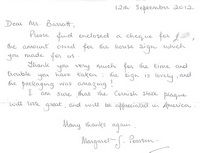 12th September 2012.
Dear Mr. Bennett,
Please find enclosed a cheque for £
the amount owed for the house sign which
you made for us.
Thank you very much for the time and
trouble you have taken: the sign is lovely and
the packaging was amazing!
I am sure that the Cornish slate plaque
will look great, and will be appreciated in America.
Many thanks again,
Margaret J.